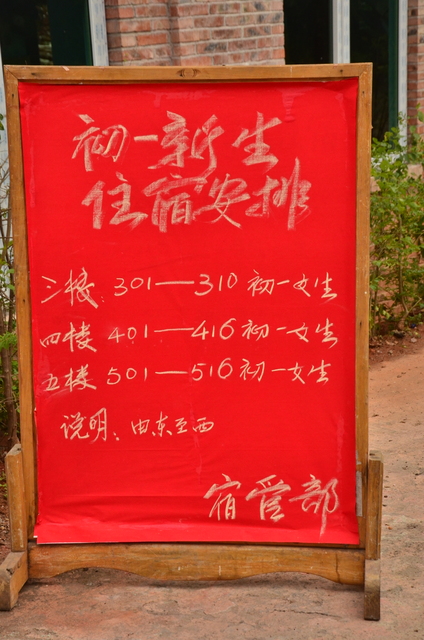 初一新生
住宿安排
三楼：301——310 初一女生
四楼 401——416 初一女生
五楼 501——516 初一女生
说明：由东至西
宿管部